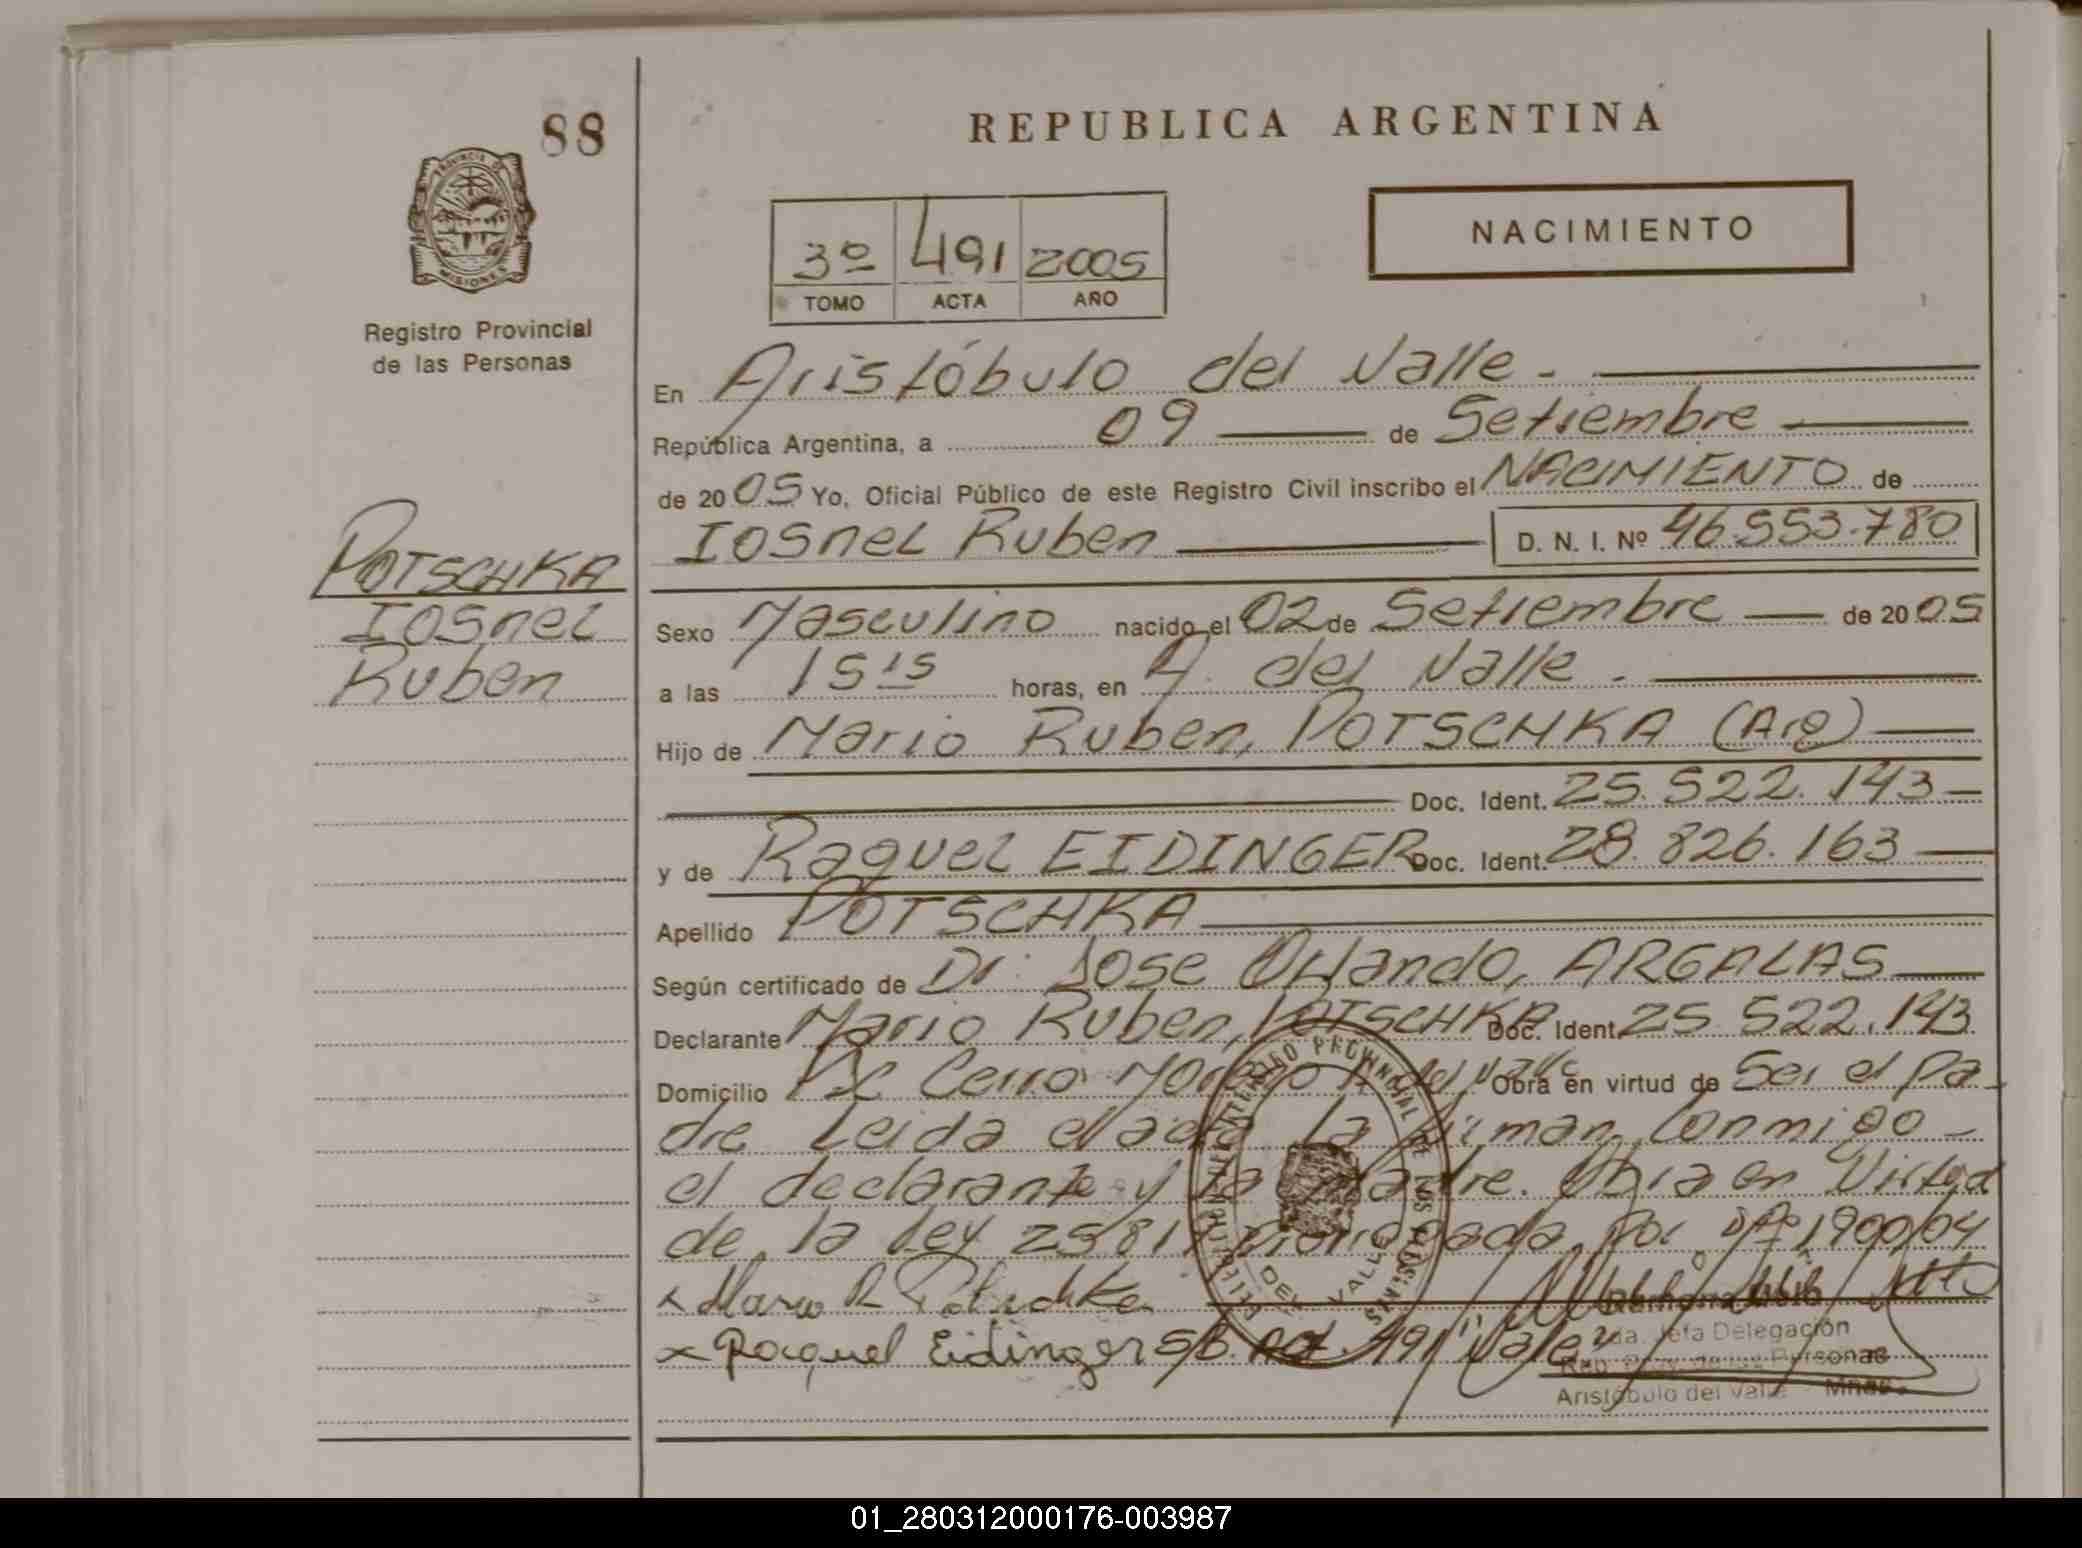 88
REPUBLICA ARGENTINA
PROVINCIA DE
MISIONES
3º 491 2005
TOMO ACTA AÑO
NACIMIENTO
Registro Provincial
de las Personas
En Aristóbulo del Valle.
República Argentina, a 09 de Setiembre
de 2005 Yo, Oficial Público de este Registro Civil inscribo el NACIMIENTO de
Iosnel Ruben D. N. I. Nº 46.553.780
POTSCHKA
Iosnel
Ruben
Sexo Masculino nacido el 02 de Setiembre de 2005
a las 15 15 horas, en A. del Valle.
Hijo de Mario Ruben, POTSCHKA (Arg)
Doc. Ident. 25.522.143
y de Raquel EIDINGER Doc. Ident. 28.826.163
Apellido POTSCHKA
Según certificado de Dr. Jose Orlando, ARGALAS
Declarante Mario Ruben, POTSCHKA Doc. Ident. 25 522.143
Domicilio Pje Cerro Moreno A. del Valle Obra en virtud de Ser el pa-
dre Leida el acta la firman conmigo
el declarante y la madre. Obra en Virtud
de la ley 25819 prorrogada por 1900/04
x Mario R Potschka
x Raquel Eidinger S/B. Act. 491 "Vale"
Jefa Delegación
Reg. Prov. de las Personas
Aristóbulo del Valle - Mnes.
01_280312000176-003987